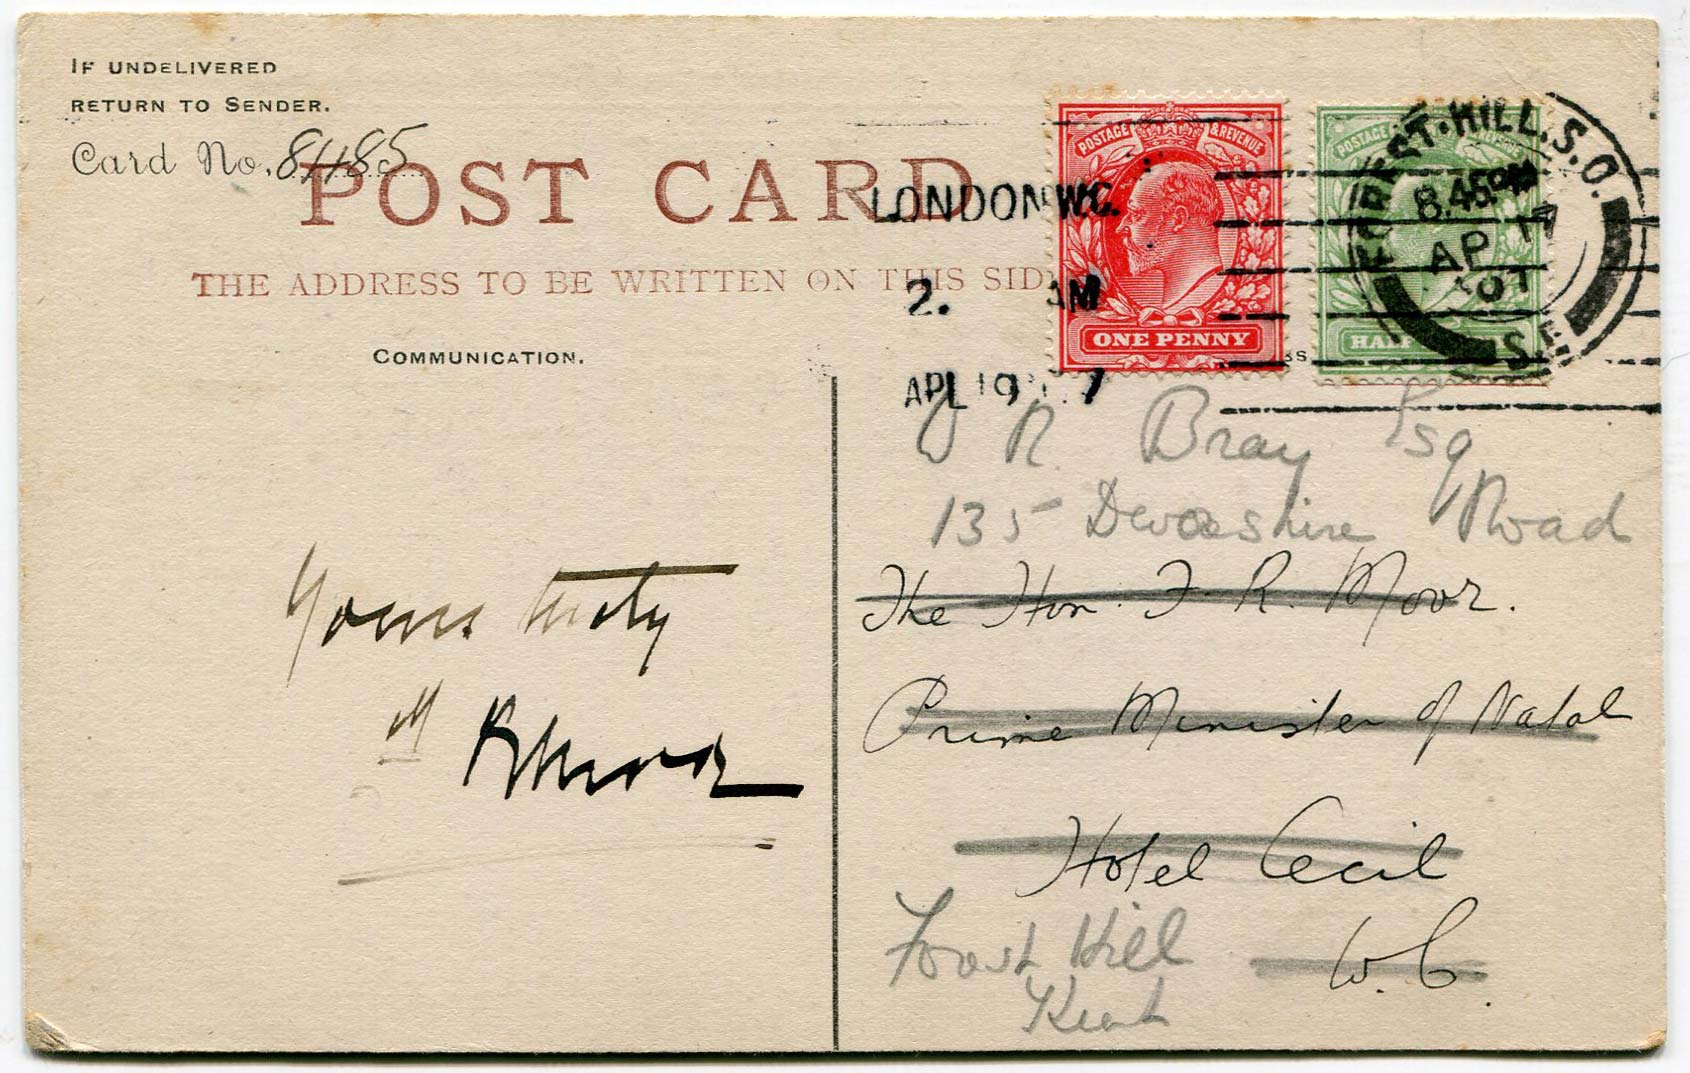 IF UNDELIVERED
RETURN TO SENDER.
Card No. 81185
POST CARD
THE ADDRESS TO BE WRITTEN ON THIS SID
COMMUNICATION.
POSTAGE & REVENUE
ONE PENNY
POSTAGE & REVENUE
HALF
LONDON W.C.
2. AM
APL 19 7
FOREST HILL. S.O.
8.45PM
AP 17
07
S.E.
W R Bray Esq
135 Devonshire Road
The Hon. F. R. Moor.
Prime Minister of Natal
Hotel Cecil
W.C.
Forest Hill
Kent
Yours truly
F R Moor